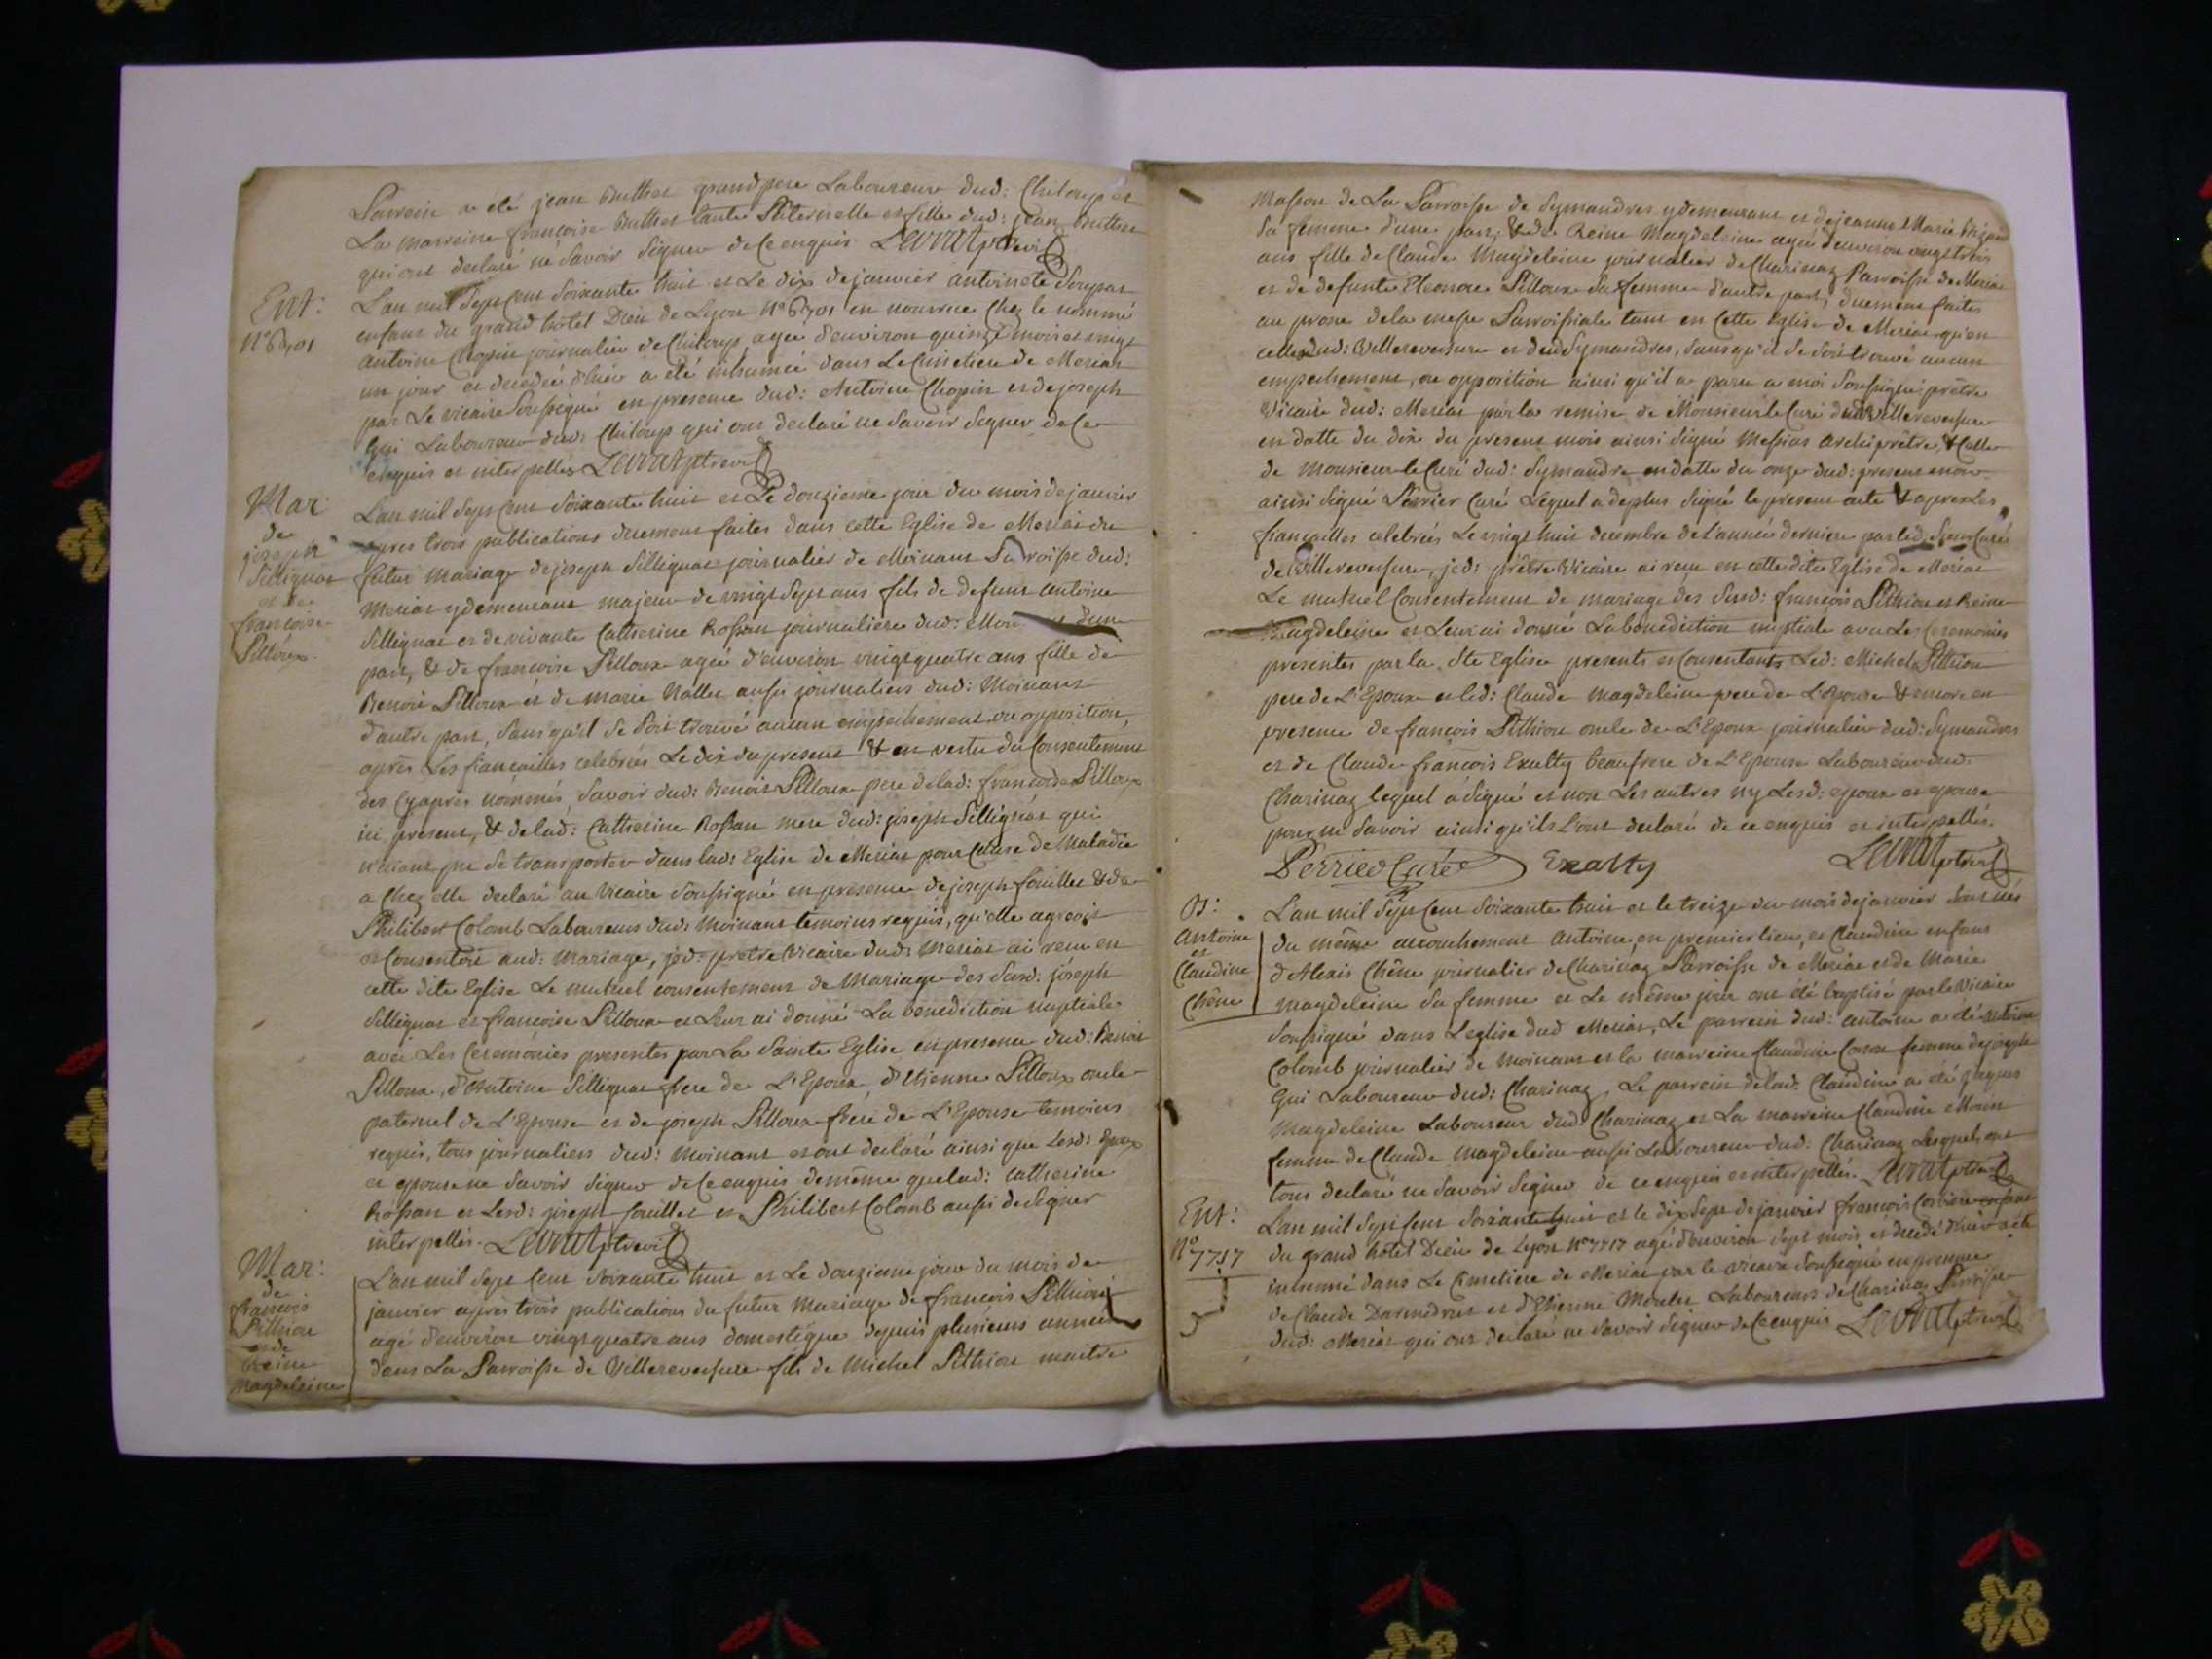 Parrein a été jean Buthet grand pere Laboureur dud: Chiloup et
La marreine françoise Buthet tante Paternelle et fille dud: jean Buthet
qui ont declaré ne Savoir Signer de Ce enquis Levrat ptre vic
Ent:
N° 6701
L'an mil Sept Cent Soixante huit et Le dix de janvier antoinete
enfant du grand hôtel Dieu de Lyon N° 6701 en nourrice Chez le nommé
antoine Chopin journalier de Chiloup agée d'environ quinze mois et vingt
un jour et decedée d'hier a été inhumée dans Le Cimetiere de Meriat
par Le vicaire Soussigné en presence dud: Antoine Chopin et de joseph
Gui Laboureur dud: Chiloup qui ont declaré ne Savoir Signer de Ce
enquis et interpellés Levrat ptre vic
Mar:
de
joseph
Sillignat
et de
françoise
Pilloux
L'an mil Sept Cent Soixante huit et Le douzieme jour du mois de janvier
apres trois publications duement faites dans cette Eglise de Meriat du
futur Mariage de joseph Sillignat journalier de Moinant Parroisse dud:
Meriat y demeurant majeur de vingt Sept ans fils de defunt Antoine
Sillignat et de vivante Catherine Rossan journaliere dud: d'une
part, & de françoise Pilloux agée d'environ vingt quatre ans fille de
Benoit Pilloux et de marie Nallet aussi journaliers dud: Moinant
d'autre part, Sans qu'il Se Soit trouvé aucun empechement ou opposition,
après Les fiançailles celebrées Le dix du present & en vertu du Consentement
des Cyaprès nommés, Savoir dud: Benoit Pilloux pere de lad: françoise Pilloux
ici present, & de lad: Catherine Rossan mere dud: joseph Silligniat qui
n'aiant pu Se transporter dans lad: Eglise de Meriat pour Cause de Maladie
a Chez elle declaré au Vicaire Soussigné en presence de joseph fouillet & de
Philibert Colomb Laboureurs dud: Moinant temoins requis, qu'elle agreoit
et Consentoit aud: Mariage, jed: prêtre Vicaire dud: Meriat ai reçu en
cette dite Eglise Le mutuel consentement de Mariage des Susd: joseph
Silligniat et françoise Pilloux et Leur ai donné La benediction nuptiale
avec Les Ceremonies presentes par La Sainte Eglise en presence dud: Benoit
Pilloux, d'Antoine Silligniat frere de L'Epoux, d'Etienne Pilloux oncle
paternel de L'Epouse et de joseph Pilloux frere de L'Epouse temoins
requis, tous journaliers dud: Moinant et ont declaré ainsi que Lesd: Epoux
et epouse ne Savoir Signer de Ce enquis de même que lad: Catherine
Rossan et Lesd: joseph fouillet et Philibert Colomb aussi de Signer
interpellés. Levrat ptre vic
Mar:
de
françois
Pithion
et de
Reine
Magdeleine
L'an mil Sept Cent Soixante huit et Le douzieme jour du mois de
janvier après trois publications du futur Mariage de françois Pithion
agé d'environ vingt quatre ans domestique depuis plusieurs années
dans La Parroisse de Villereversure fils de Michel Pithion maitre
Masson de La Parroisse de Symandres y demeurant et de jeanne Marie
Sa femme d'une part, & de Reine Magdeleine agée d'environ vingt trois
ans fille de Claude Magdeleine journalier de Charinaz Parroisse de Meriat
et de defunte Eleonore Pilloux Sa femme d'autre part, duement faites
au prone de la messe Parroissiale tant en Cette Eglise de Meriat qu'en
celles dud: Villereversure et dud Symandres, Sans qu'il Se Soit trouvé aucun
empechement, ou opposition ainsi qu'il a paru a moi Soussigné prêtre
Vicaire dud: Meriat par la remise de Monsieur le Curé dud Villereversure
en datte du dix du present mois ainsi Signé Messias archiprêtre, & Celle
de Monsieur le Curé dud: Symandre en datte du onze dud: present mois
ainsi Signé Perrier Curé Lequel a de plus Signé le present acte & après Les
fiançailles celebrées Le vingt huit decembre de L'année derniere par led. Sieur Curé
de Villereversure, jed: prêtre Vicaire ai reçu en cette dite Eglise de Meriat
Le mutuel Consentement de mariage des Susd: françois Pithion et Reine
Magdeleine et Leur ai donné La benediction nuptiale avec Les Ceremonies
presentes par la Ste Eglise presents et Consentants Led: Michel Pithion
pere de L'Epoux et led: Claude Magdeleine pere de L'Epouse & encore en
presence de françois Pithion oncle de L'Epoux journalier dud: Symandres
et de Claude françois Exalty beaufrere de L'Epouse Laboureur dud:
Charinaz lequel a Signé et non Les autres ny Lesd: epoux et epouse
pour ne Savoir ainsi qu'ils L'ont declaré de ce enquis et interpellés.
Perrier Curé Exalty Levrat ptre vic
B:
Antoine
et
Claudine
Chêne
L'an mil Sept Cent Soixante huit et le treize du mois de janvier Sont nés
du même accouchement Antoine, en premier lieu, et Claudine enfans
d'Alexis Chêne journalier de Charinaz Parroisse de Meriat et de Marie
Magdeleine Sa femme et Le même jour ont été baptisé par le Vicaire
Soussigné dans L'eglise dud Meriat, Le parrein dud: antoine a été Antoine
Colomb journalier de Moinant et la marreine Claudine femme de joseph
Gui Laboureur dud: Charinaz, Le parrein de lad: Claudine a été jaques
Magdeleine Laboureur dud: Charinaz et La marreine Claudine Morin
femme de Claude Magdeleine aussi Laboureur dud: Charinaz Lesquels ont
tous declaré ne Savoir Signer de ce enquis et interpellés. Levrat ptre vic
Ent:
N°
7717
L'an mil Sept Cent Soixante huit et le dix Sept de janvier françois enfant
du grand hotel Dieu de Lyon N° 7717 agé d'environ Sept mois et decedé d'hier a été
inhumé dans Le Cimetiere de Meriat par le vicaire Soussigné en presence
de Claude Darmedrut et d'Etienne Morelet Laboureurs de Charinaz Parroisse
dud: Meriat qui ont declaré ne Savoir Signer de Ce enquis Levrat ptre vic